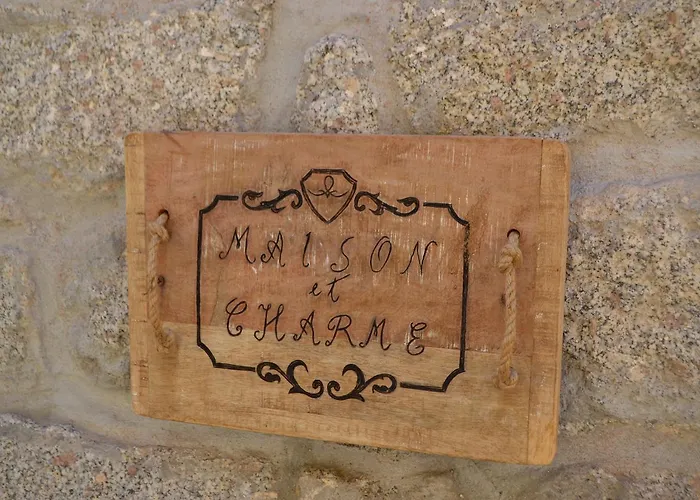 MAISON
et
CHARME